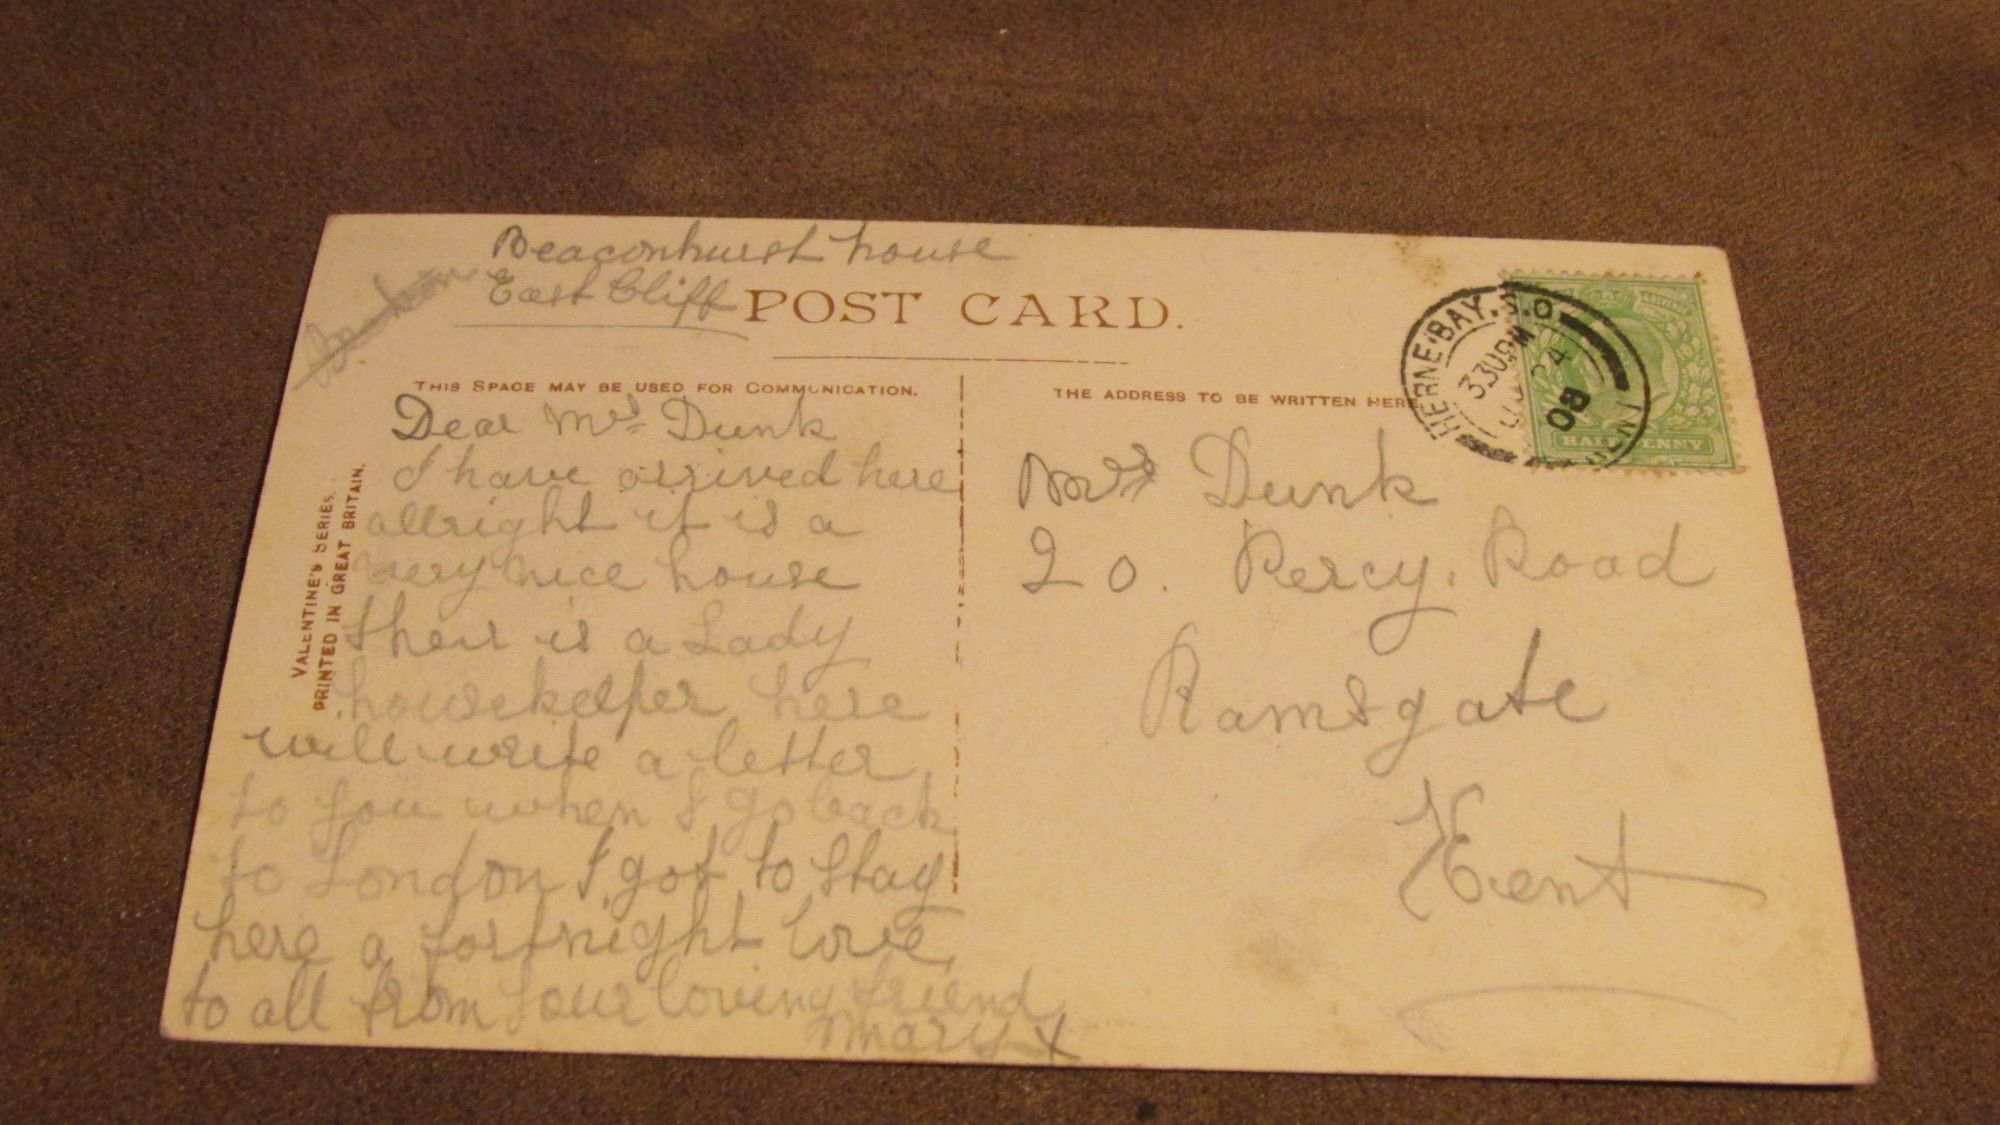 Beaconhurst house
East Cliff
POST CARD.
THIS SPACE MAY BE USED FOR COMMUNICATION.
THE ADDRESS TO BE WRITTEN HERE
VALENTINE'S SERIES.
PRINTED IN GREAT BRITAIN.
Dear Mrs Dunk
I have arrived here
allright it is a
very nice house
their is a Lady
housekeeper here
will write a letter
to you when I go back
to London I got to stay
here a fortnight love
to all from your loving friend
Mary X
Mrs Dunk
20. Percy. Road
Ramsgate
Kent
HERNE BAY. S.O
330PM
4
08
HALFPENNY